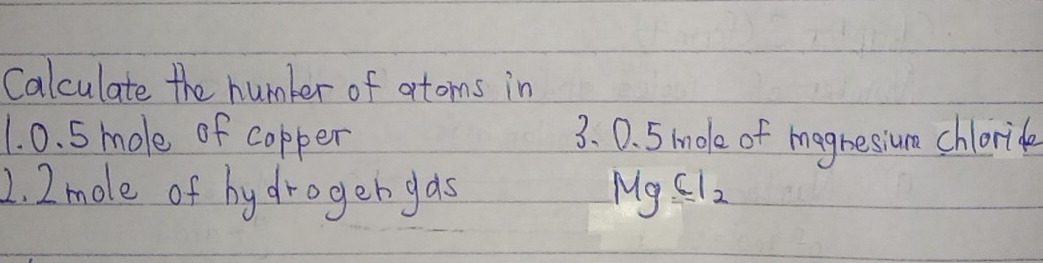 Calculate the number of atoms in
1. 0.5 mole of copper
2. 2 mole of hydrogen gas
3. 0.5 mole of magnesium chloride
MgCl₂